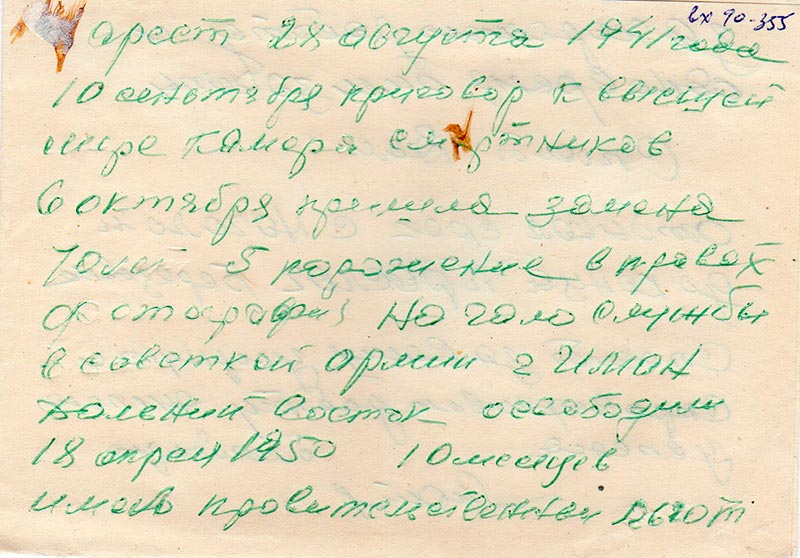 вх 90-355
арест 28 августа 1941 года
10 сентября приговор к высшей
мере камера смертников
6 октября пришла замена
10 лет 5 поражение в правах
фотография начало службы
в советкой армии г Иман
далений восток освободили
18 апрел 1950 10 месяцев
имею правительственных льгот